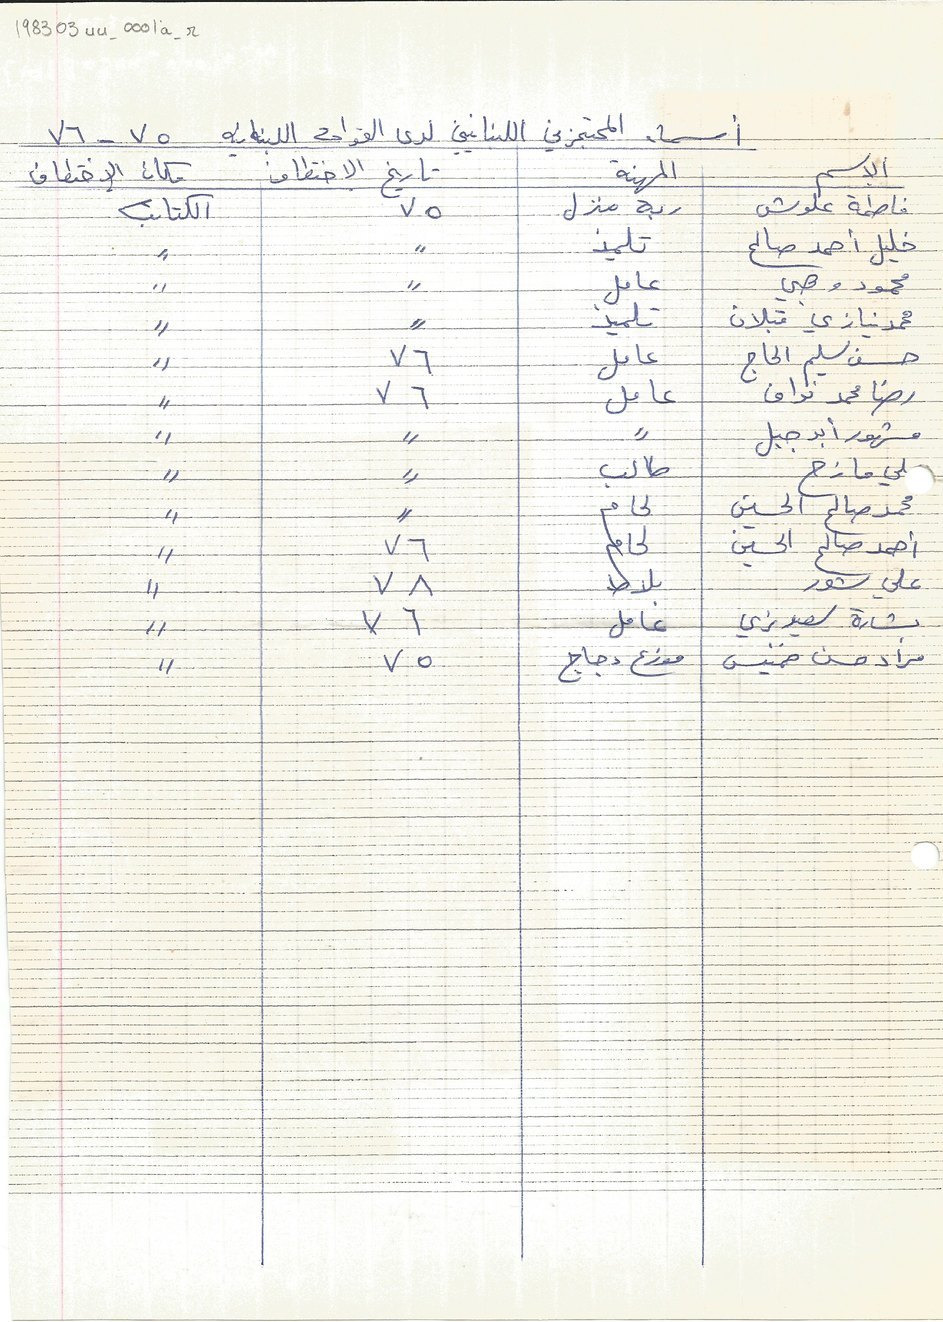 198303uu_0001a_r
أسماء المحتجزين اللبنانيين لدى القوات اللبنانية ٧٥ - ٧٦
الاسم المهنة تاريخ الاختطاف مكان الإختطاف
فاطمة علوش ربة منزل ٧٥ الكتائب
خليل أحمد صالح تلميذ " "
محمود وهبي عامل " "
محمد نيازي قبلان تلميذ " "
حسن سليم الحاج عامل ٧٦ "
رضا محمد نواف عامل ٧٦ "
مشهور أبو جبل " " "
علي مازح طالب " "
محمد صالح الحسين لحام " "
أحمد صالح الحسين لحام ٧٦ "
علي شور بلاط ٧٨ "
بشارة سعيد عامل ٧٦ "
حسن موزع دجاج ٧٥ "